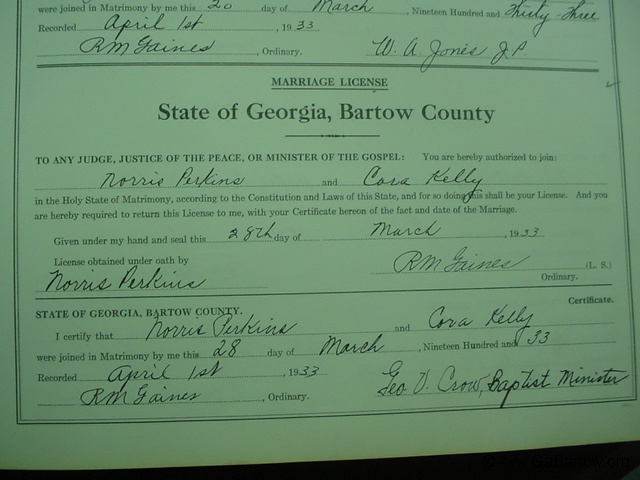 were joined in Matrimony by me this 20 day of March, Nineteen Hundred and Thirty-Three
Recorded April 1st, 1933
RM Gaines, Ordinary. W. A. Jones J.P.
MARRIAGE LICENSE
State of Georgia, Bartow County
TO ANY JUDGE, JUSTICE OF THE PEACE, OR MINISTER OF THE GOSPEL: You are hereby authorized to join:
Norris Perkins and Cora Kelly
in the Holy State of Matrimony, according to the Constitution and Laws of this State, and for so doing this shall be your License. And you
are hereby required to return this License to me, with your Certificate hereon of the fact and date of the Marriage.
Given under my hand and seal this 28th day of March, 1933
License obtained under oath by RM Gaines (L. S.)
Norris Perkins Ordinary.
STATE OF GEORGIA, BARTOW COUNTY. Certificate.
I certify that Norris Perkins and Cora Kelly
were joined in Matrimony by me this 28 day of March, Nineteen Hundred and 33
Recorded April 1st, 1933
RM Gaines, Ordinary. Geo V. Crow, Baptist Minister